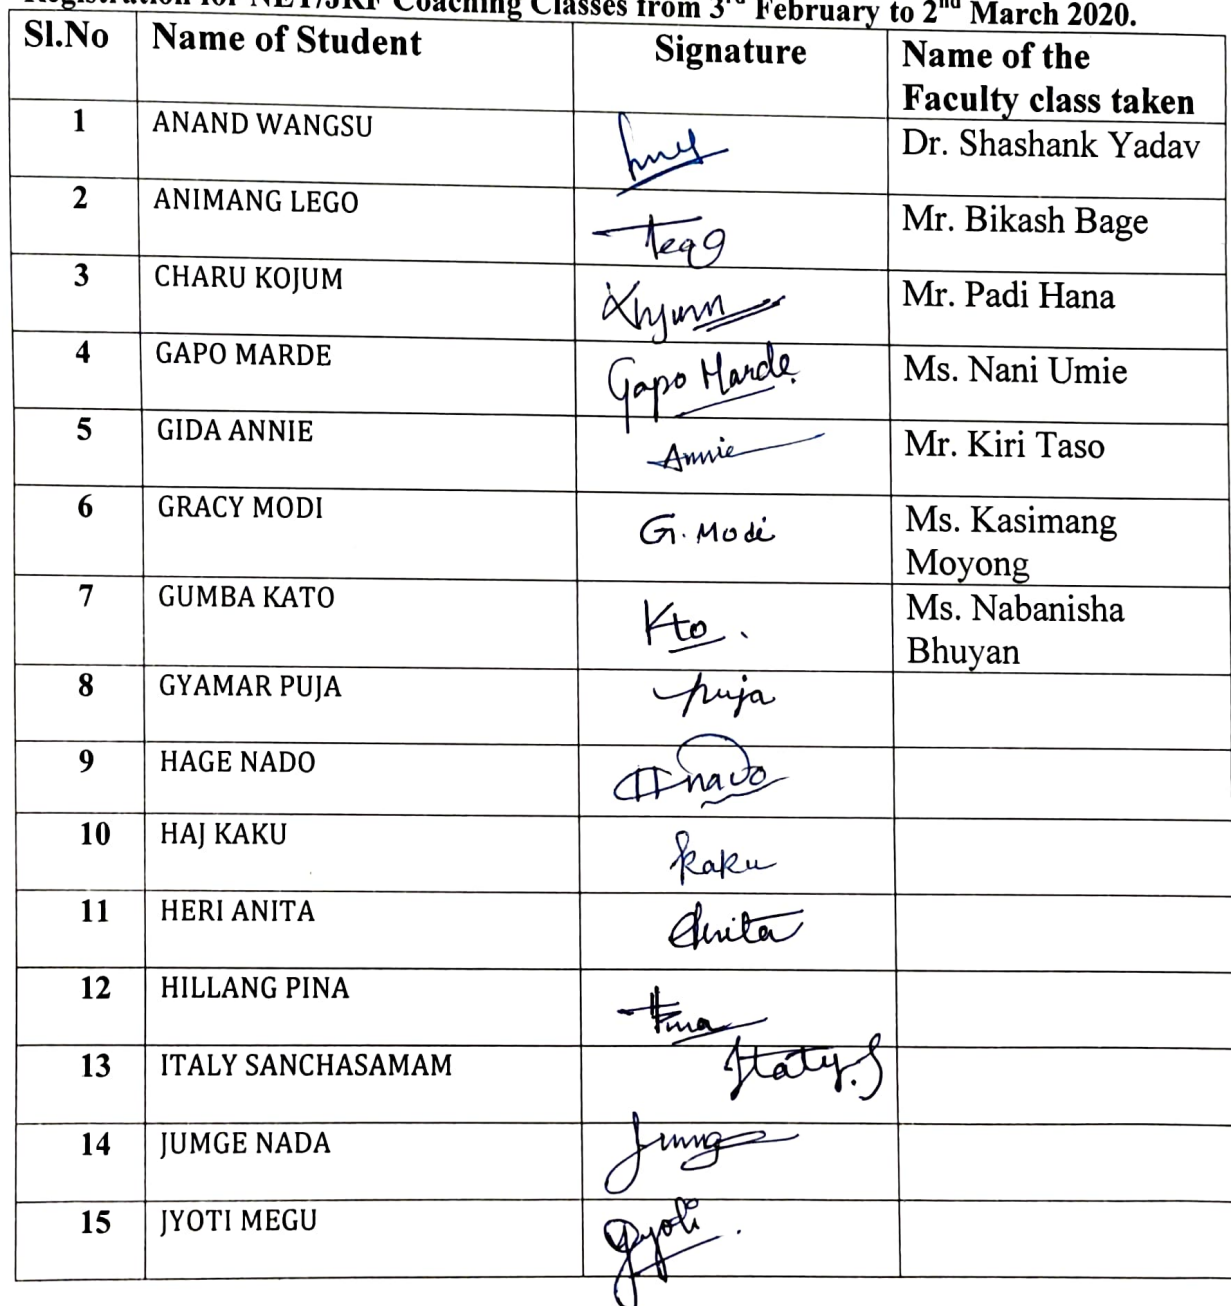 Registration for NET/JRF Coaching Classes from 3rd February to 2nd March 2020.
Sl.No Name of Student Signature Name of the
Faculty class taken
1 ANAND WANGSU Dr. Shashank Yadav
2 ANIMANG LEGO Mr. Bikash Bage
3 CHARU KOJUM Mr. Padi Hana
4 GAPO MARDE Gapo Marde Ms. Nani Umie
5 GIDA ANNIE Annie Mr. Kiri Taso
6 GRACY MODI G. Modi Ms. Kasimang
Moyong
7 GUMBA KATO Kto . Ms. Nabanisha
Bhuyan
8 GYAMAR PUJA puja
9 HAGE NADO
10 HAJ KAKU kaku
11 HERI ANITA Anita
12 HILLANG PINA
13 ITALY SANCHASAMAM Italy.S
14 JUMGE NADA Jumge
15 JYOTI MEGU Jyoti .